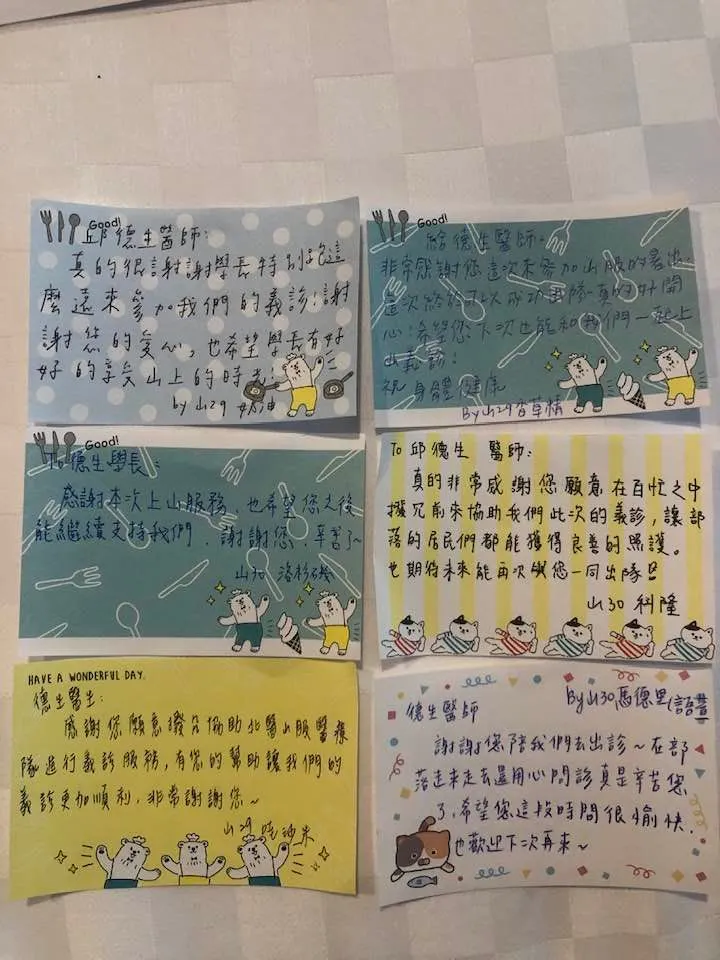 Good!
邱德生醫師:
真的很謝謝學長特別跑這
麼遠來參加我們的義診!謝
謝您的愛心,也希望學長有好
好的享受山上的時光!
by 山29 奶油
Good!
給德生醫師:
非常感謝您這次來參加山服的義出,
這次終於可以成功出隊真的好開
心!希望您下次也能和我們一起上
山義診!
祝 身體健康
By 山29香草精
Good!
To 德生學長:
感謝本次上山服務,也希望您之後
能繼續支持我們,謝謝您,辛苦了~
山30 洛杉磯
To 邱德生 醫師:
真的非常感謝您願意在百忙之中
撥冗前來協助我們此次的義診,讓部
落的居民們都能獲得良善的照護。
也期待未來能再次與您一同出隊
山30 科隆
HAVE A WONDERFUL DAY.
德生醫生:
感謝您願意撥冗協助北醫山服醫療
隊進行義診服務,有您的幫助讓我們的
義診更加順利,非常謝謝您~
山29 哇沙米
德生醫師
By山30馬德里(語萱)
謝謝您陪我們去出診~在部
落走來走去還用心問診真是辛苦您
了,希望您這段時間很愉快,
也歡迎下次再來~